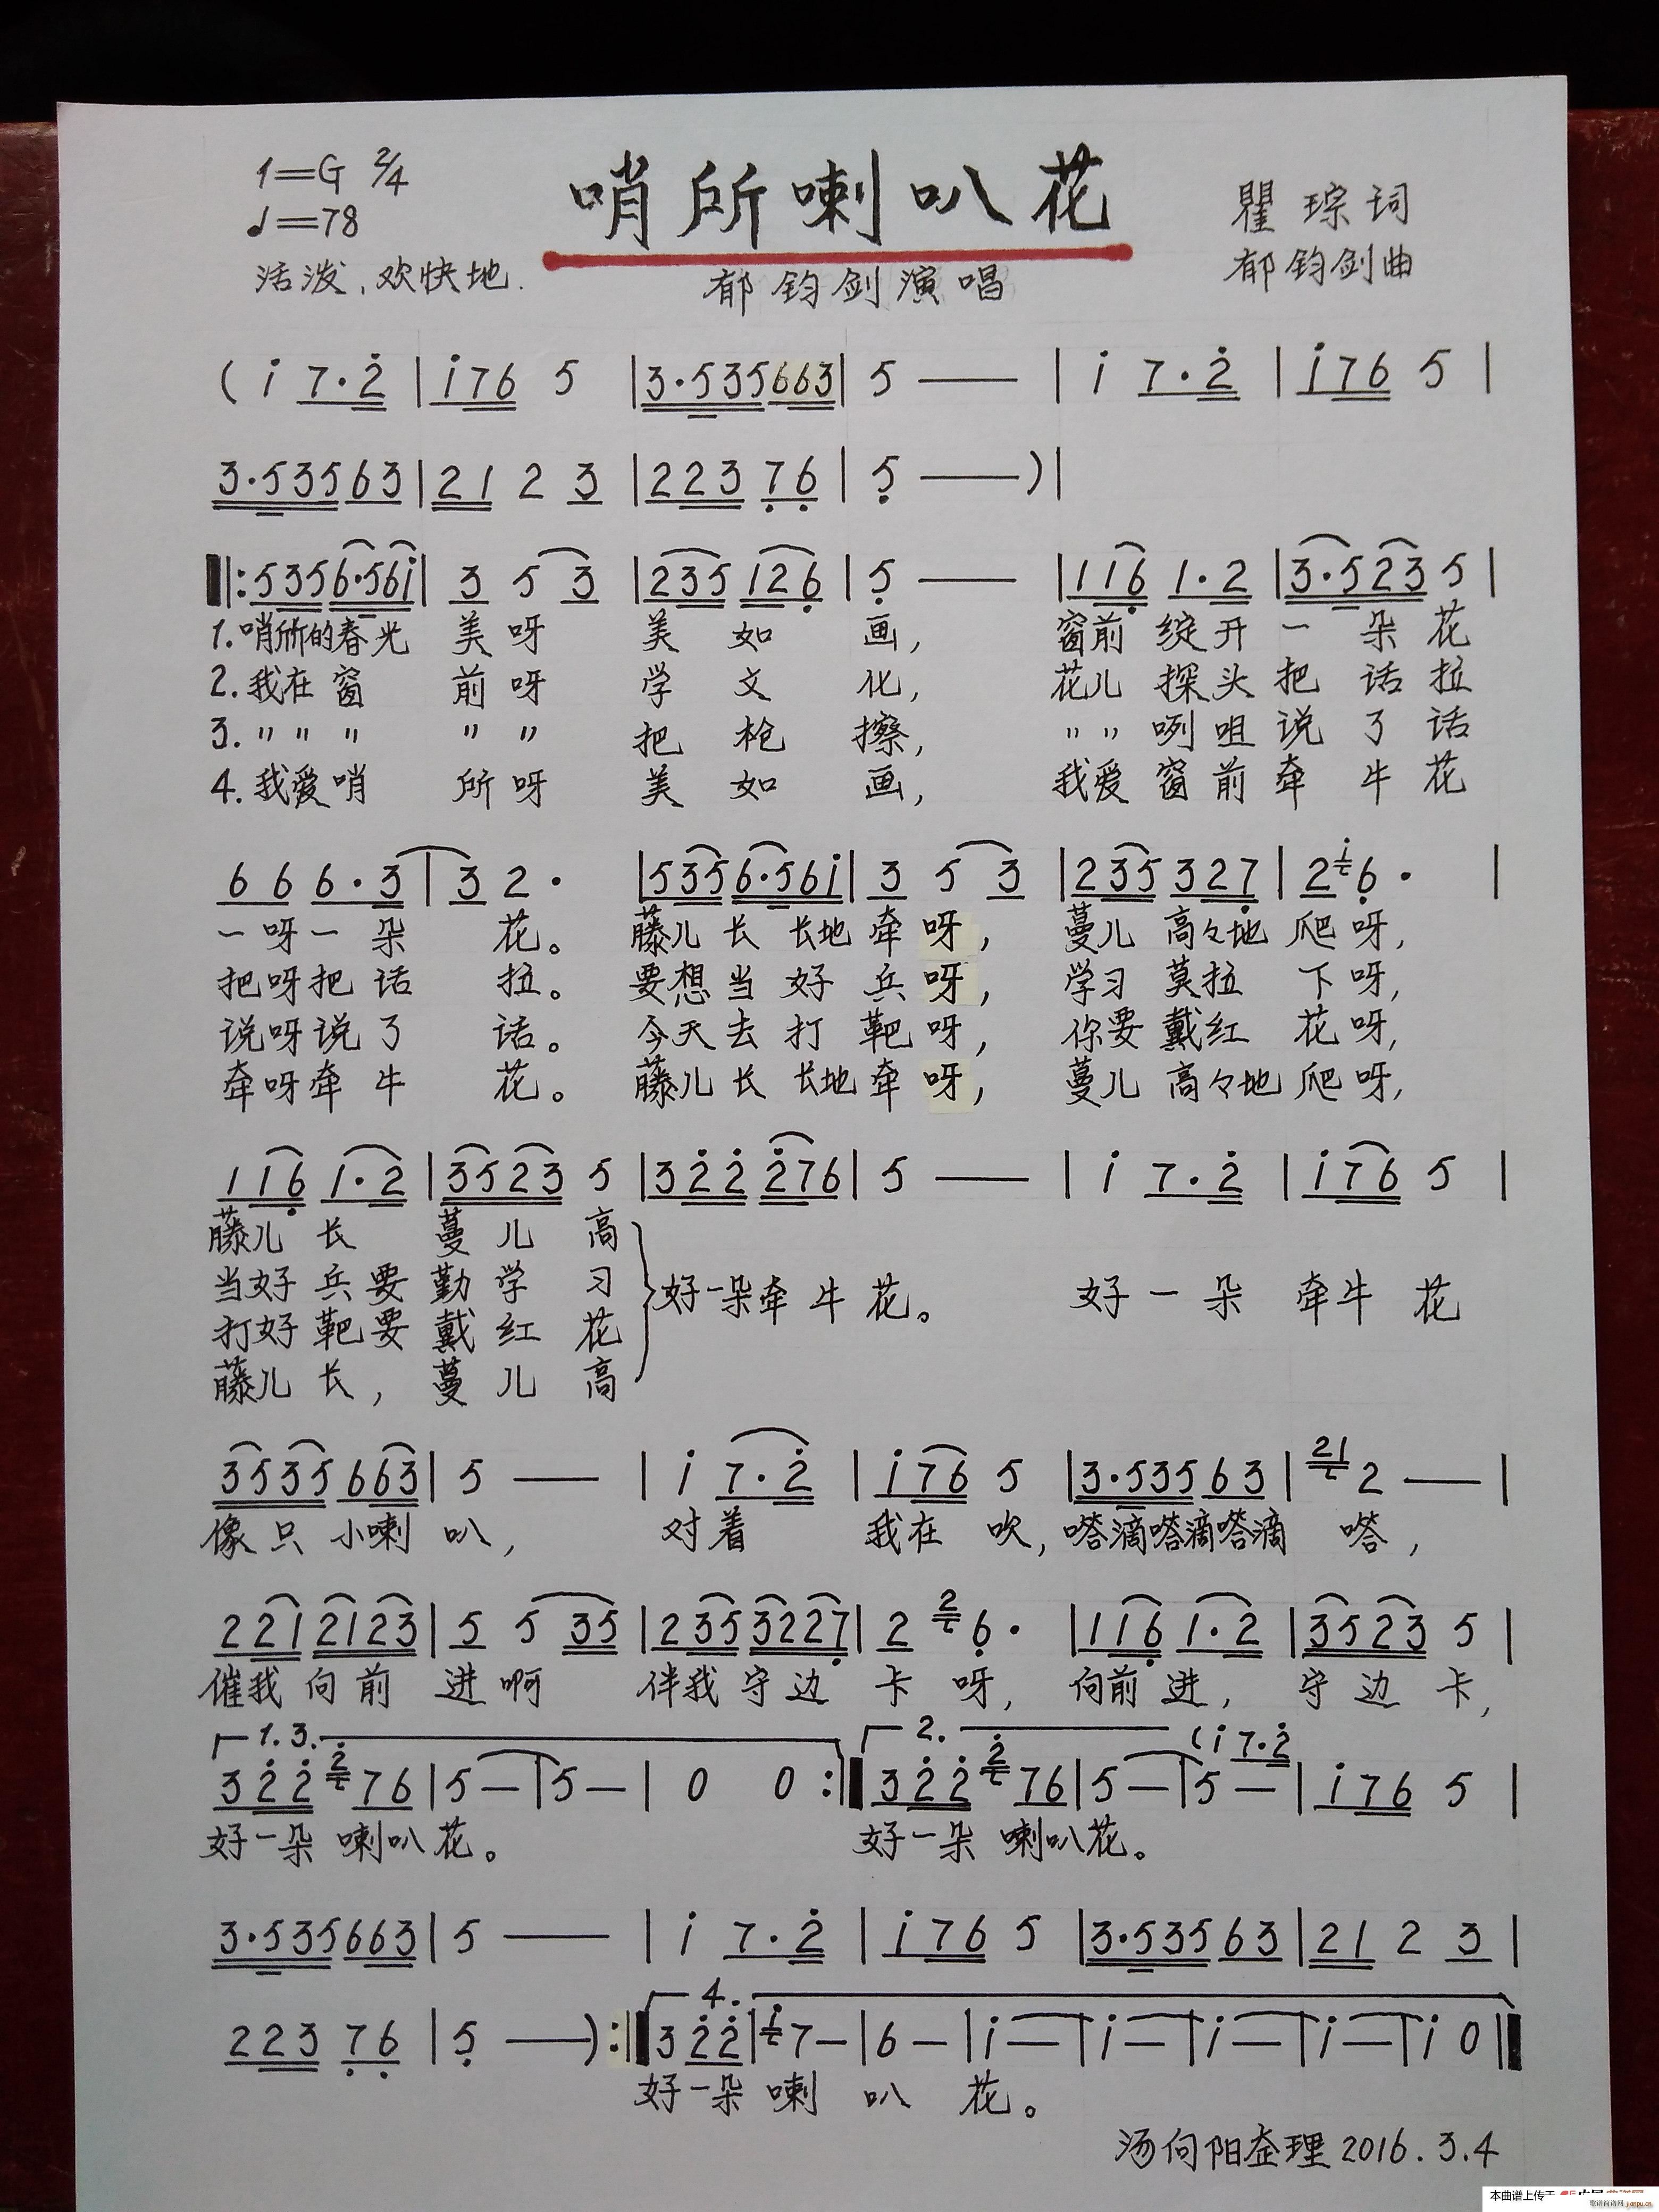 1=G 2/4
♩=78
哨所喇叭花
瞿琮词
郁钧剑曲
活泼、欢快地.
郁钧剑演唱
( i 7·2 | i76 5 | 3·535663 | 5 — | i 7·2 | i76 5 |
3·53563 | 21 2 3 | 223 76 | 5 — ) |
‖: 5356·56i | 3 5 3 | 235 126 | 5 — | 116 1·2 | 3·523 5 |
1.哨所的春光 美呀 美 如 画, 窗前 绽开 一 朵 花
2.我在窗 前呀 学 文 化, 花儿 探头 把 话 拉
3. 〃 〃 〃 〃 〃 把 枪 擦, 〃 〃 咧咀 说 了 话
4.我爱哨 所呀 美 如 画, 我爱 窗前 牵 牛 花
6 6 6·3 | 3 2· | 5356·56i | 3 5 3 | 235 327 | 2 i 6· |
一呀一朵 花。 藤儿长 长地牵呀, 蔓儿 高々地 爬呀,
把呀把话 拉。 要想当 好 兵呀, 学习 莫拉 下呀,
说呀说了 话。 今天去 打 靶呀, 你要 戴红 花呀,
牵呀牵牛 花。 藤儿长 长地牵呀, 蔓儿 高々地 爬呀,
116 1·2 | 3523 5 | 322 276 | 5 — | i 7·2 | i76 5 |
藤儿 长 蔓 儿 高
当好 兵要 勤 学 习
好一朵牵 牛 花。 好 一 朵 牵牛 花
打好 靶要 戴 红 花
藤儿 长, 蔓 儿 高
3535 663 | 5 — | i 7·2 | i76 5 | 3·535 63 | 21 2 — |
像 只 小喇 叭, 对着 我在 吹, 嗒滴嗒滴嗒滴 嗒,
221 2123 | 5 5 35 | 235 3227 | 2 2 6· | 116 1·2 | 3523 5 |
催我 向前 进啊 伴我 守边 卡 呀, 向前 进, 守 边 卡,
1. 3. 2. (i 7·2
322 2 76 | 5 — | 5 — | 0 0 :‖ 322 2 76 | 5 — | 5 — | i76 5 |
好一朵 喇叭花。 好一朵 喇叭花。
3·535663 | 5 — | i 7·2 | i76 5 | 3·53563 | 21 2 3 |
4.
223 76 | 5 — ) :‖ 322 | i 7 — | 6 — | i — | i — | i — | i — | i 0 ‖
好一朵 喇 叭 花。
汤向阳整理 2016.3.4
本曲谱上传于